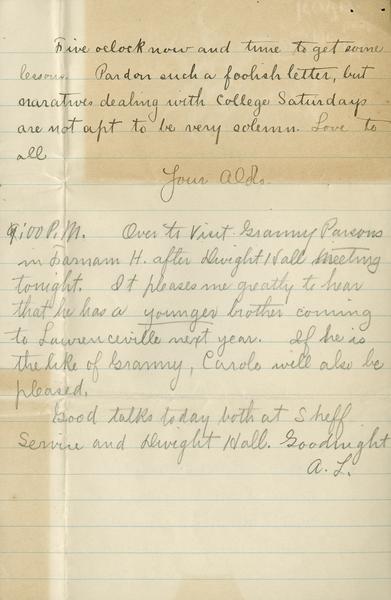 Five oclock now and time to get some
lessons. Pardon such a foolish letter, but
naratives dealing with College Saturdays
are not apt to be very solemn. Love to
all
Your Aldo.
9:00 P.M. Over to visit Granny Parsons
in Farnam H. after Dwight Hall meeting
tonight. It pleases me greatly to hear
that he has a younger brother coming
to Lawrenceville next year. If he is
the like of Granny, Carolo will also be
pleased.
Good talks today both at Sheff
Service and Dwight Hall. Goodnight
A. L.